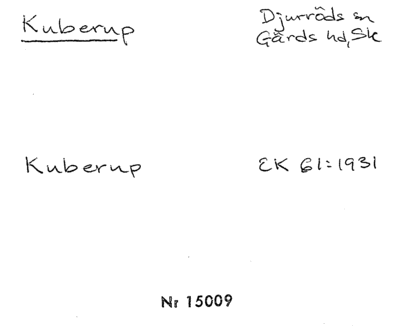 Kuberup
Djurröds sn
Gärds hd, Sk
Kuberup
EK 61:1931
Nr 15009